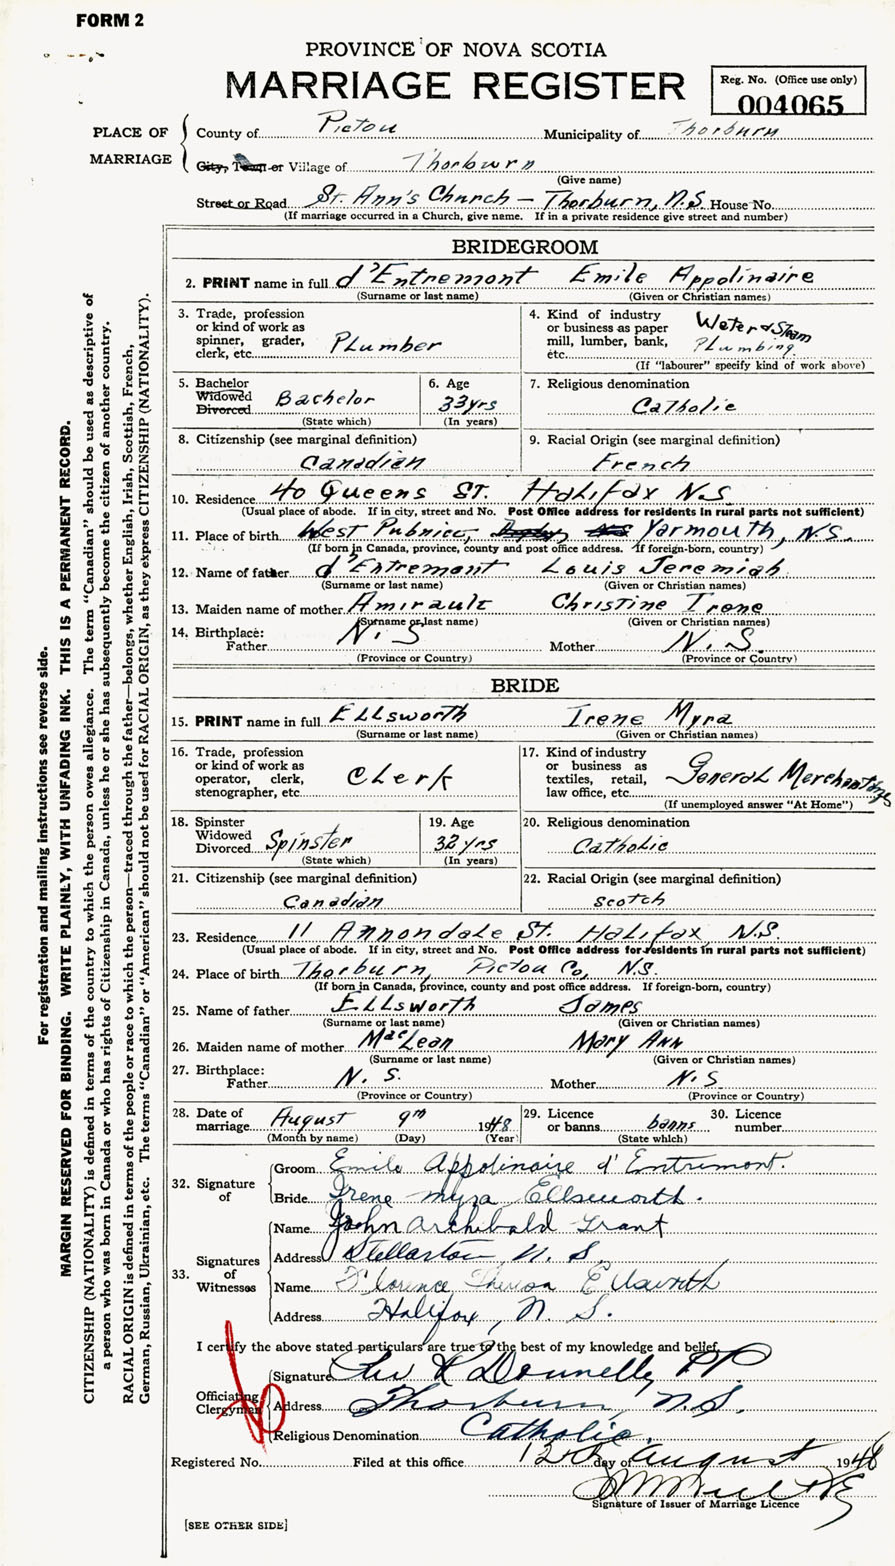 FORM 2
PROVINCE OF NOVA SCOTIA
MARRIAGE REGISTER
Reg. No. (Office use only)
004065
PLACE OF MARRIAGE
County of Pictou Municipality of Thorburn
City, Town or Village of Thorburn
(Give name)
Street or Road St. Ann's Church — Thorburn, N.S. House No.
(If marriage occurred in a Church, give name. If in a private residence give street and number)
BRIDEGROOM
2. PRINT name in full d'Entremont Emile Appolinaire
(Surname or last name) (Given or Christian names)
3. Trade, profession or kind of work as spinner, grader, clerk, etc. Plumber
4. Kind of industry or business as paper mill, lumber, bank, etc. Water & Steam Plumbing
(If "labourer" specify kind of work above)
5. Bachelor Widowed Divorced Bachelor
(State which)
6. Age 33 yrs
(In years)
7. Religious denomination
Catholic
8. Citizenship (see marginal definition)
Canadian
9. Racial Origin (see marginal definition)
French
10. Residence 40 Queens St. Halifax N.S.
(Usual place of abode. If in city, street and No. Post Office address for residents in rural parts not sufficient)
11. Place of birth West Pubnico, Yarmouth, N.S.
(If born in Canada, province, county and post office address. If foreign-born, country)
12. Name of father d'Entremont Louis Jeremiah
(Surname or last name) (Given or Christian names)
13. Maiden name of mother Amirault Christine Irene
(Surname or last name) (Given or Christian names)
14. Birthplace:
Father N.S. Mother N.S.
(Province or Country) (Province or Country)
BRIDE
15. PRINT name in full Ellsworth Irene Myra
(Surname or last name) (Given or Christian names)
16. Trade, profession or kind of work as operator, clerk, stenographer, etc. Clerk
17. Kind of industry or business as textiles, retail, law office, etc. General
(If unemployed answer "At Home")
18. Spinster Widowed Divorced Spinster
(State which)
19. Age 32 yrs
(In years)
20. Religious denomination
Catholic
21. Citizenship (see marginal definition)
Canadian
22. Racial Origin (see marginal definition)
Scotch
23. Residence 11 Annondale St. Halifax N.S.
(Usual place of abode. If in city, street and No. Post Office address for residents in rural parts not sufficient)
24. Place of birth Thorburn, Pictou Co, N.S.
(If born in Canada, province, county and post office address. If foreign-born, country)
25. Name of father Ellsworth James
(Surname or last name) (Given or Christian names)
26. Maiden name of mother MacLean Mary Ann
(Surname or last name) (Given or Christian names)
27. Birthplace:
Father N.S. Mother N.S
(Province or Country) (Province or Country)
28. Date of marriage August 9th 1948
(Month by name) (Day) (Year)
29. Licence or banns banns
(State which)
30. Licence number
32. Signature of
Groom Emile Appolinaire d'Entremont.
Bride Irene Myra Ellsworth.
33. Signatures of Witnesses
Name John Archibald Grant
Address Stellarton N.S.
Name Florence Theresa Ellsworth
Address Halifax, N.S.
I certify the above stated particulars are true to the best of my knowledge and belief.
Officiating Clergyman
Signature Donnelly P.P.
Address Thorburn, N.S.
Religious Denomination Catholic.
Registered No. Filed at this office 12th day of August 1948
Signature of Issuer of Marriage Licence
[SEE OTHER SIDE]
For registration and mailing instructions see reverse side.
MARGIN RESERVED FOR BINDING. WRITE PLAINLY, WITH UNFADING INK. THIS IS A PERMANENT RECORD.
CITIZENSHIP (NATIONALITY) is defined in terms of the country to which the person owes allegiance. The term "Canadian" should be used as descriptive of
a person who was born in Canada or who has rights of Citizenship in Canada, unless he or she has subsequently become the citizen of another country.
RACIAL ORIGIN is defined in terms of the people or race to which the person—traced through the father—belongs, whether English, Irish, Scottish, French,
German, Russian, Ukrainian, etc. The terms "Canadian" or "American" should not be used for RACIAL ORIGIN, as they express CITIZENSHIP (NATIONALITY).